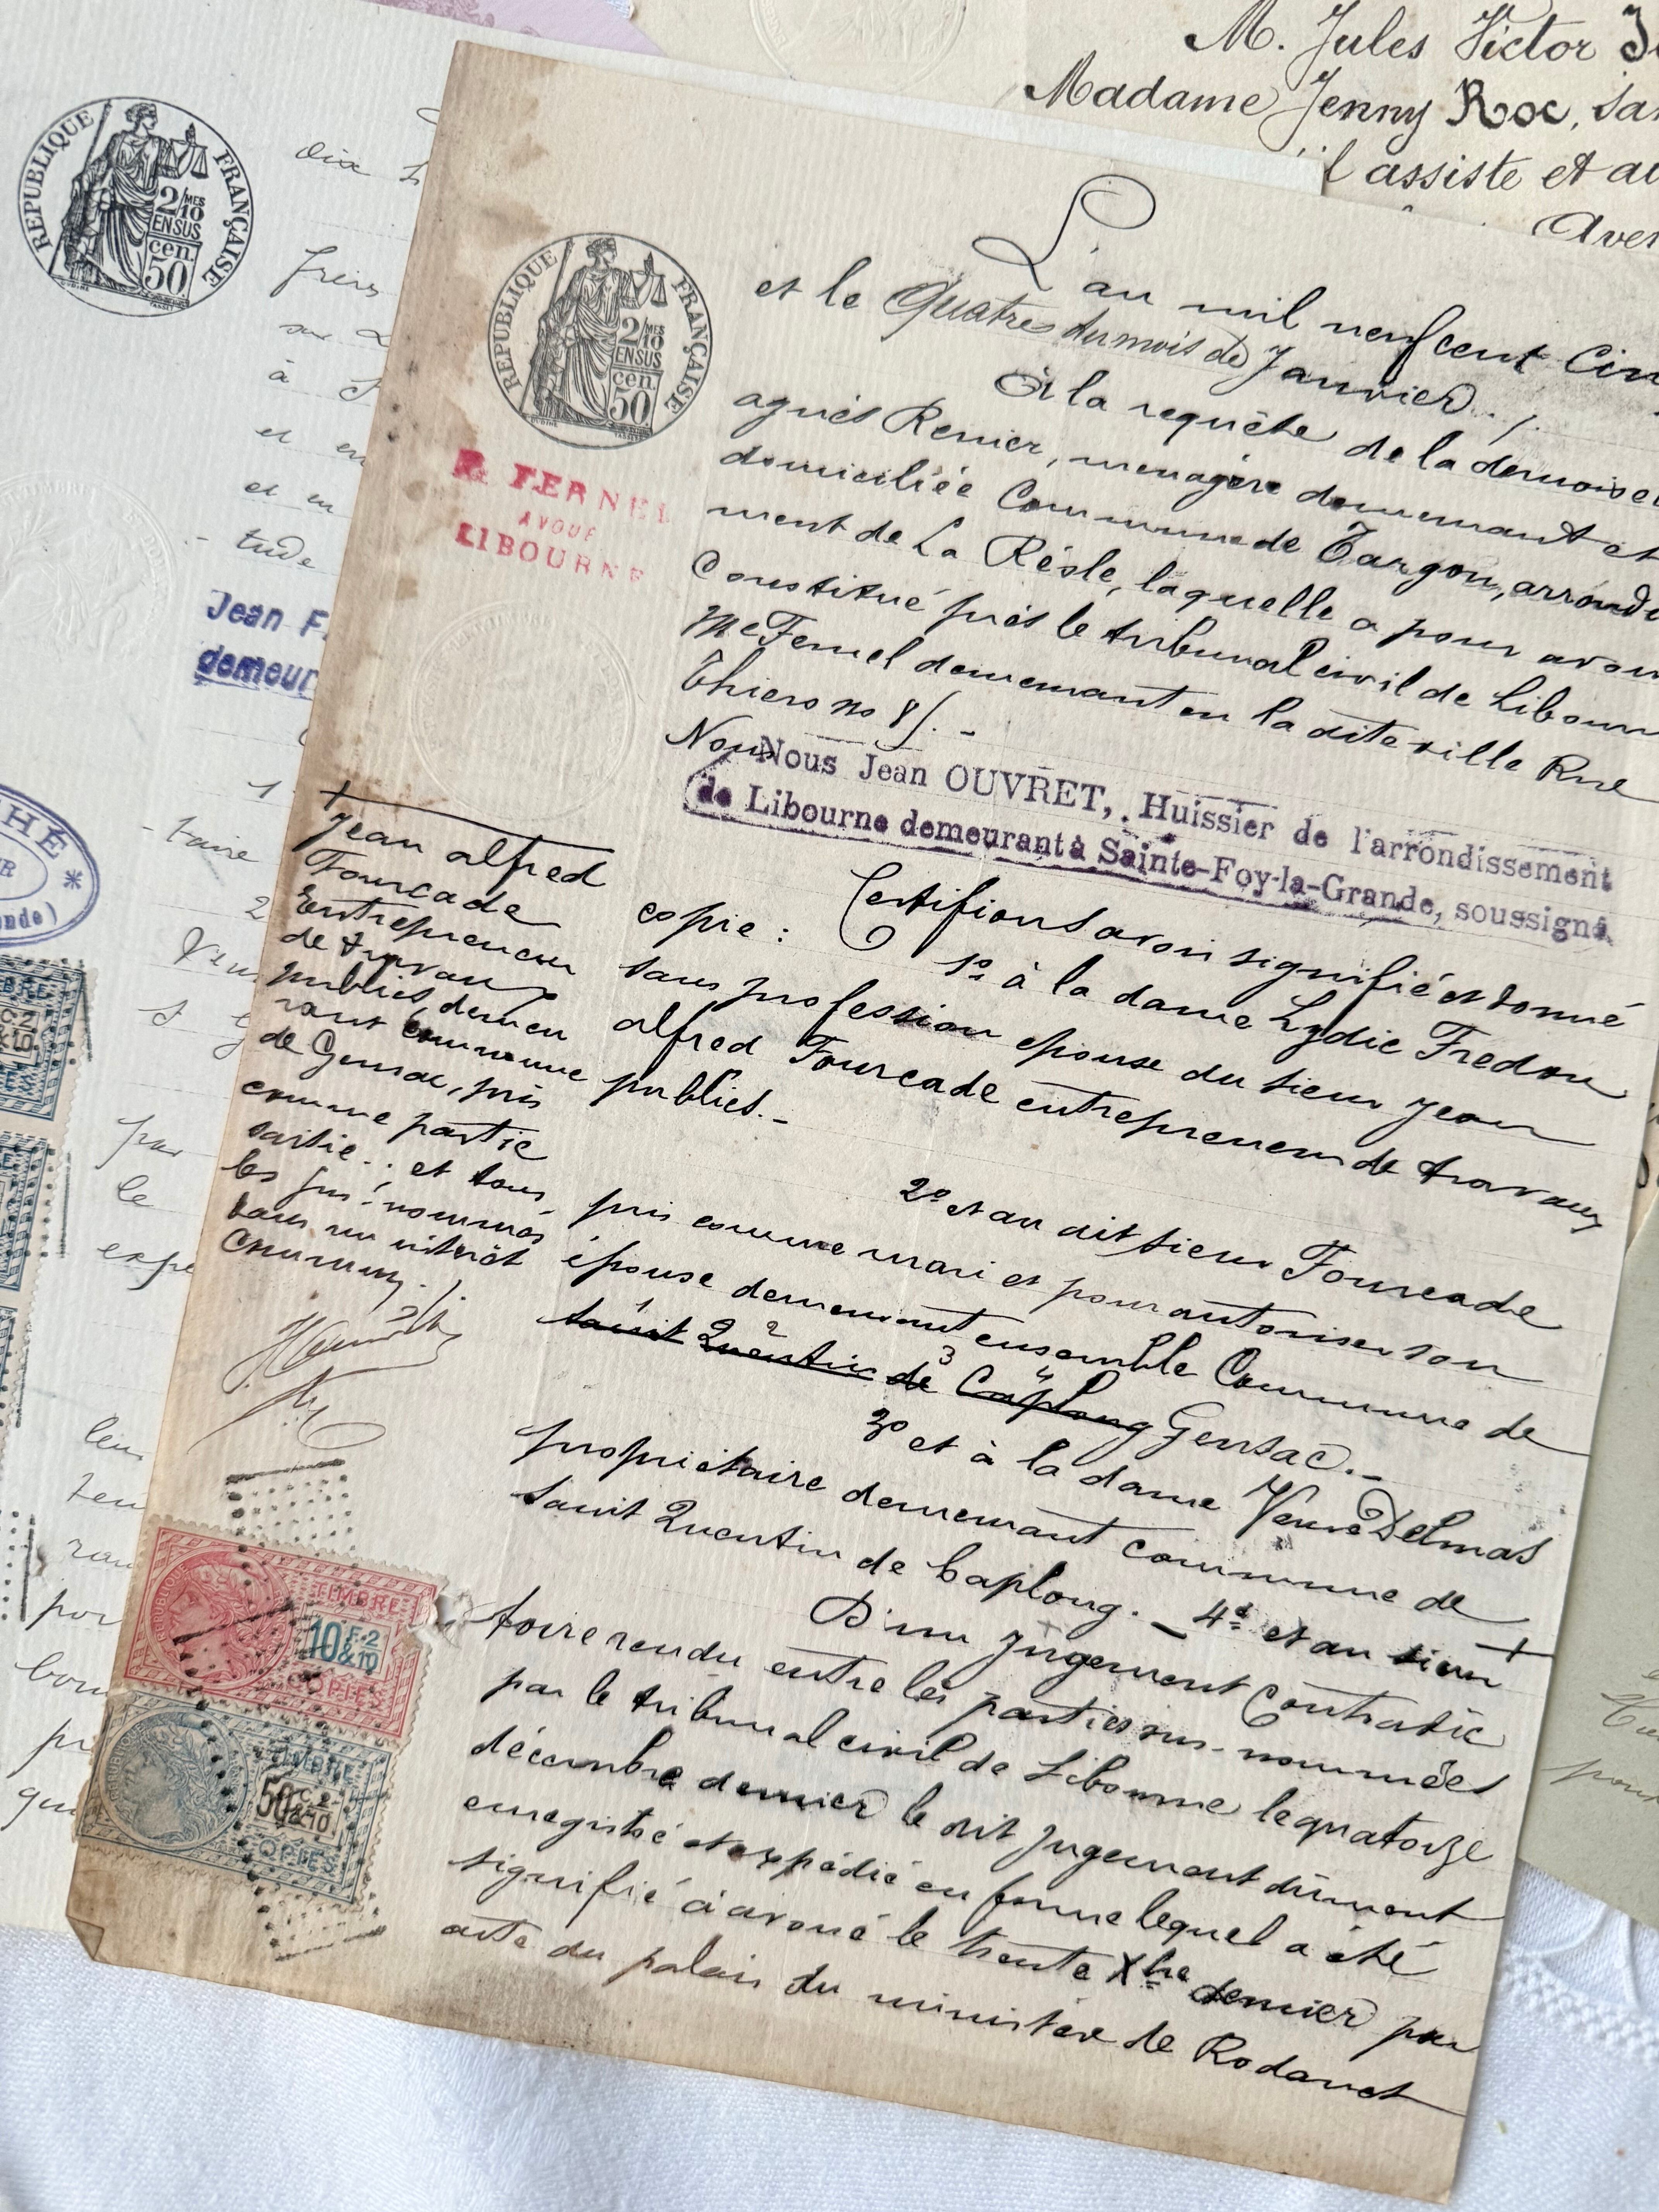 M. Jules Victor
Madame Jenny Roc, san
l'assiste et au
Aver
REPUBLIQUE FRANÇAISE
2/10 MES
EN SUS
50 cen.
dix
frers
sur
à
et en
et en
tude
Jean F
demeur
1
faire
2
HÉ *
onde)
par
le
expe
leu
ten
ran
por
bou
pr
qu
REPUBLIQUE FRANÇAISE
2/10 MES
EN SUS
50 cen.
R. FERNEL
AVOUÉ
LIBOURNE
L'an mil neuf cent Cin
et le Quatre du mois de Janvier . /.
À la requête de la demoisel
agnès Renier, menagère demeurant et
domiciliée Commune de Targon, arrondi
ment de La Réole, laquelle a pour avou
Constitué près le tribunal civil de Libourn
Me Fernel demeurant en la dite ville Rue
Thiers no 8/. -
Nous
Nous Jean OUVRET, Huissier de l'arrondissement
de Libourne demeurant à Sainte-Foy-la-Grande, soussigné
Certifions avoir signifié et donné
copie : 1o à la dame Lydie Fredou
sans profession epouse du sieur Jean
alfred Fourcade entrepreneur de travaux
publics. -
2o et au dit sieur Fourcade
pris comme mari et pour autoriser son
épouse demeurant ensemble Commune de
saint Quentin de Caplong Gensac. -
2 3 4
3o et à la dame Veuve Delmas
propriétaire demeurant commune de
saint Quentin de Caplong. - 4o et au sieur +
D'un jugement Contradic
toire rendu entre les parties sus-nommées
par le tribunal civil de Libourne le quatorze
décembre dernier le dit jugement dûment
enregistré et expédié en forme lequel a été
signifié à avoué le trente Xbre dernier par
acte du palais du ministère de Rodanet
+
Jean alfred
Fourcade
Entrepreneur
de travaux
publics, demeu
rant commune
de Gensac, pris
comme partie
saisie ; et tous
les sus-nommés
dans un intérêt
Commun . /.
TIMBRE
10 F. 2 & 10
COPIES
TIMBRE
50 C. 2 & 10
COPIES